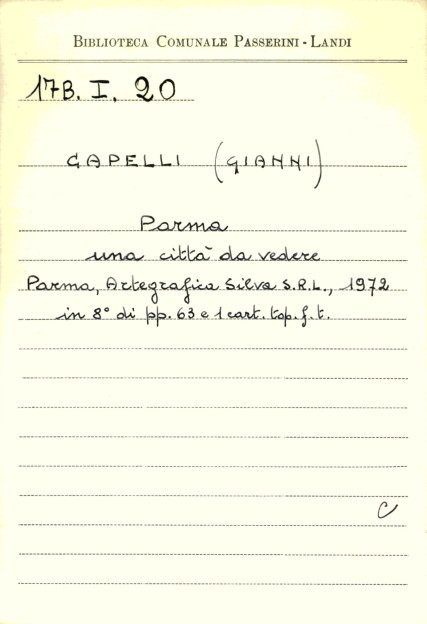 BIBLIOTECA COMUNALE PASSERINI - LANDI
17B. I. 20
CAPELLI (GIANNI)
Parma
una città da vedere
Parma, Artegrafica Silva S.R.L., 1972
in 8° di pp. 63 e 1 cart. top. f. t.
C